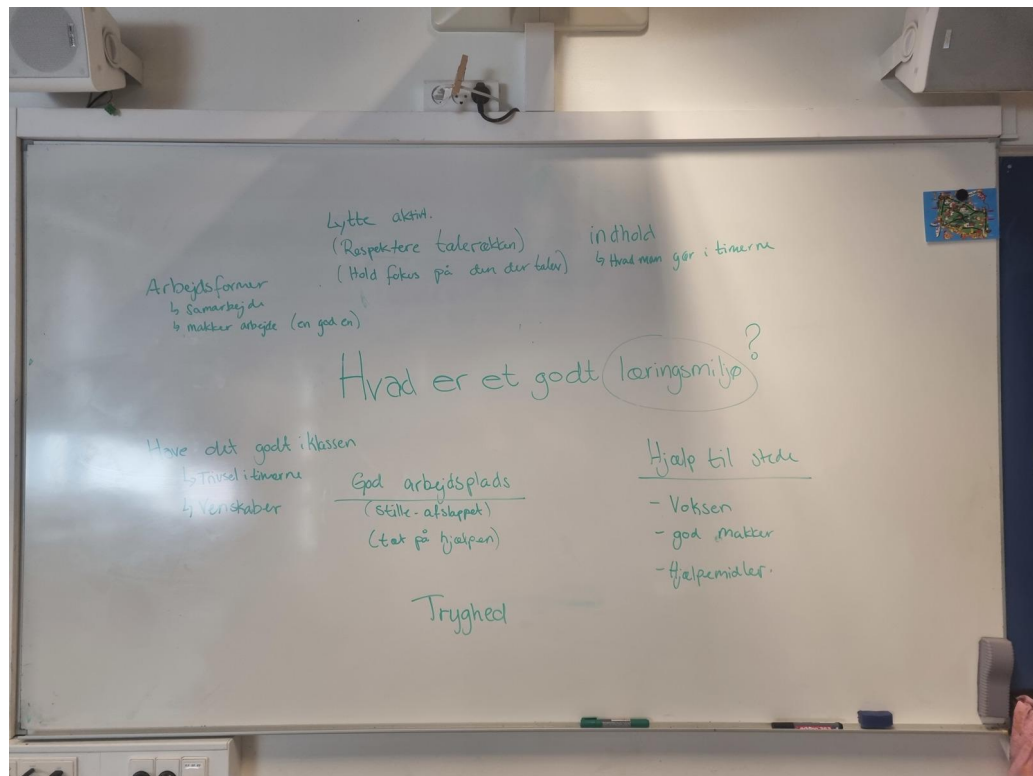 Lytte aktivt.
(Respektere talerækken)
(Hold fokus på den der taler)
indhold
↳ Hvad man gør i timerne
Arbejdsformer
↳ Samarbejde
↳ makker arbejde (en god en)
Hvad er et godt læringsmiljø?
Have det godt i klassen
↳ Trivsel i timerne
↳ Venskaber
God arbejdsplads
(Stille - afslappet)
(tæt på hjælpen)
Hjælp til stede
- Voksen
- god makker
- Hjælpemidler.
Tryghed